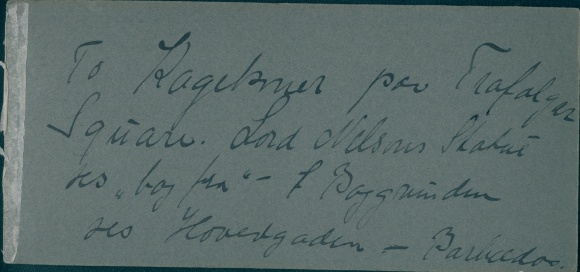 To Kagekoner paa Trafalgar
Square. Lord Nelsons Statue
ses "bag fra" - I Baggrunden
ses Hovedgaden - Barbados.